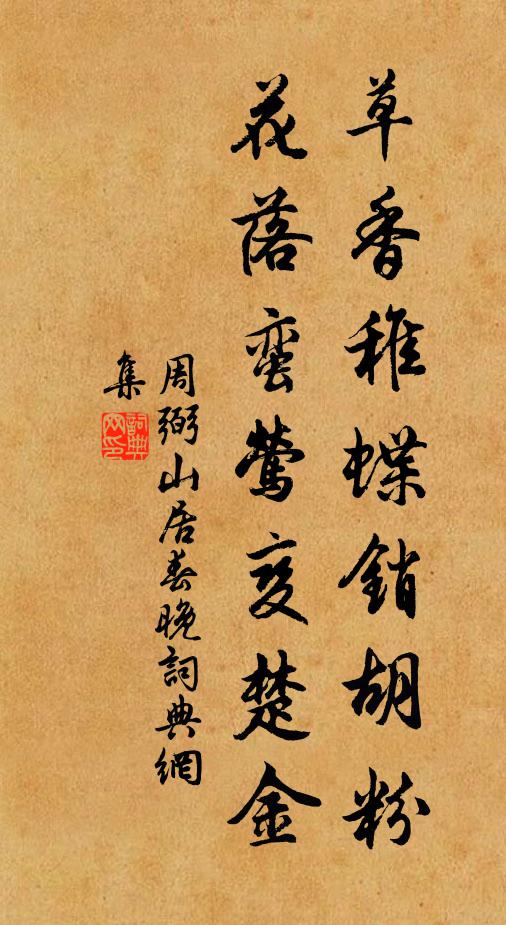 草香稚蝶銷胡粉
花落蛮莺变楚金
周弼山居春晚詞典網
集
詞典网印